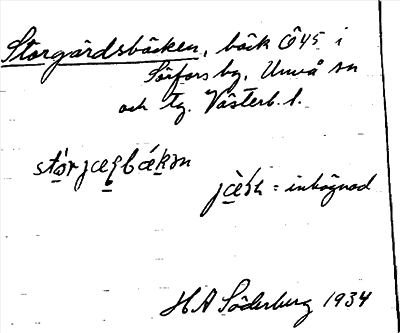 Storgårdsbäcken, bäck Ö45 i
Sörfors by, Umeå sn
och tg. Västerb. l.
stórjæɐ̯bǽkən
jæ̀ɐ̯h = inhägnad
H A Söderberg 1934